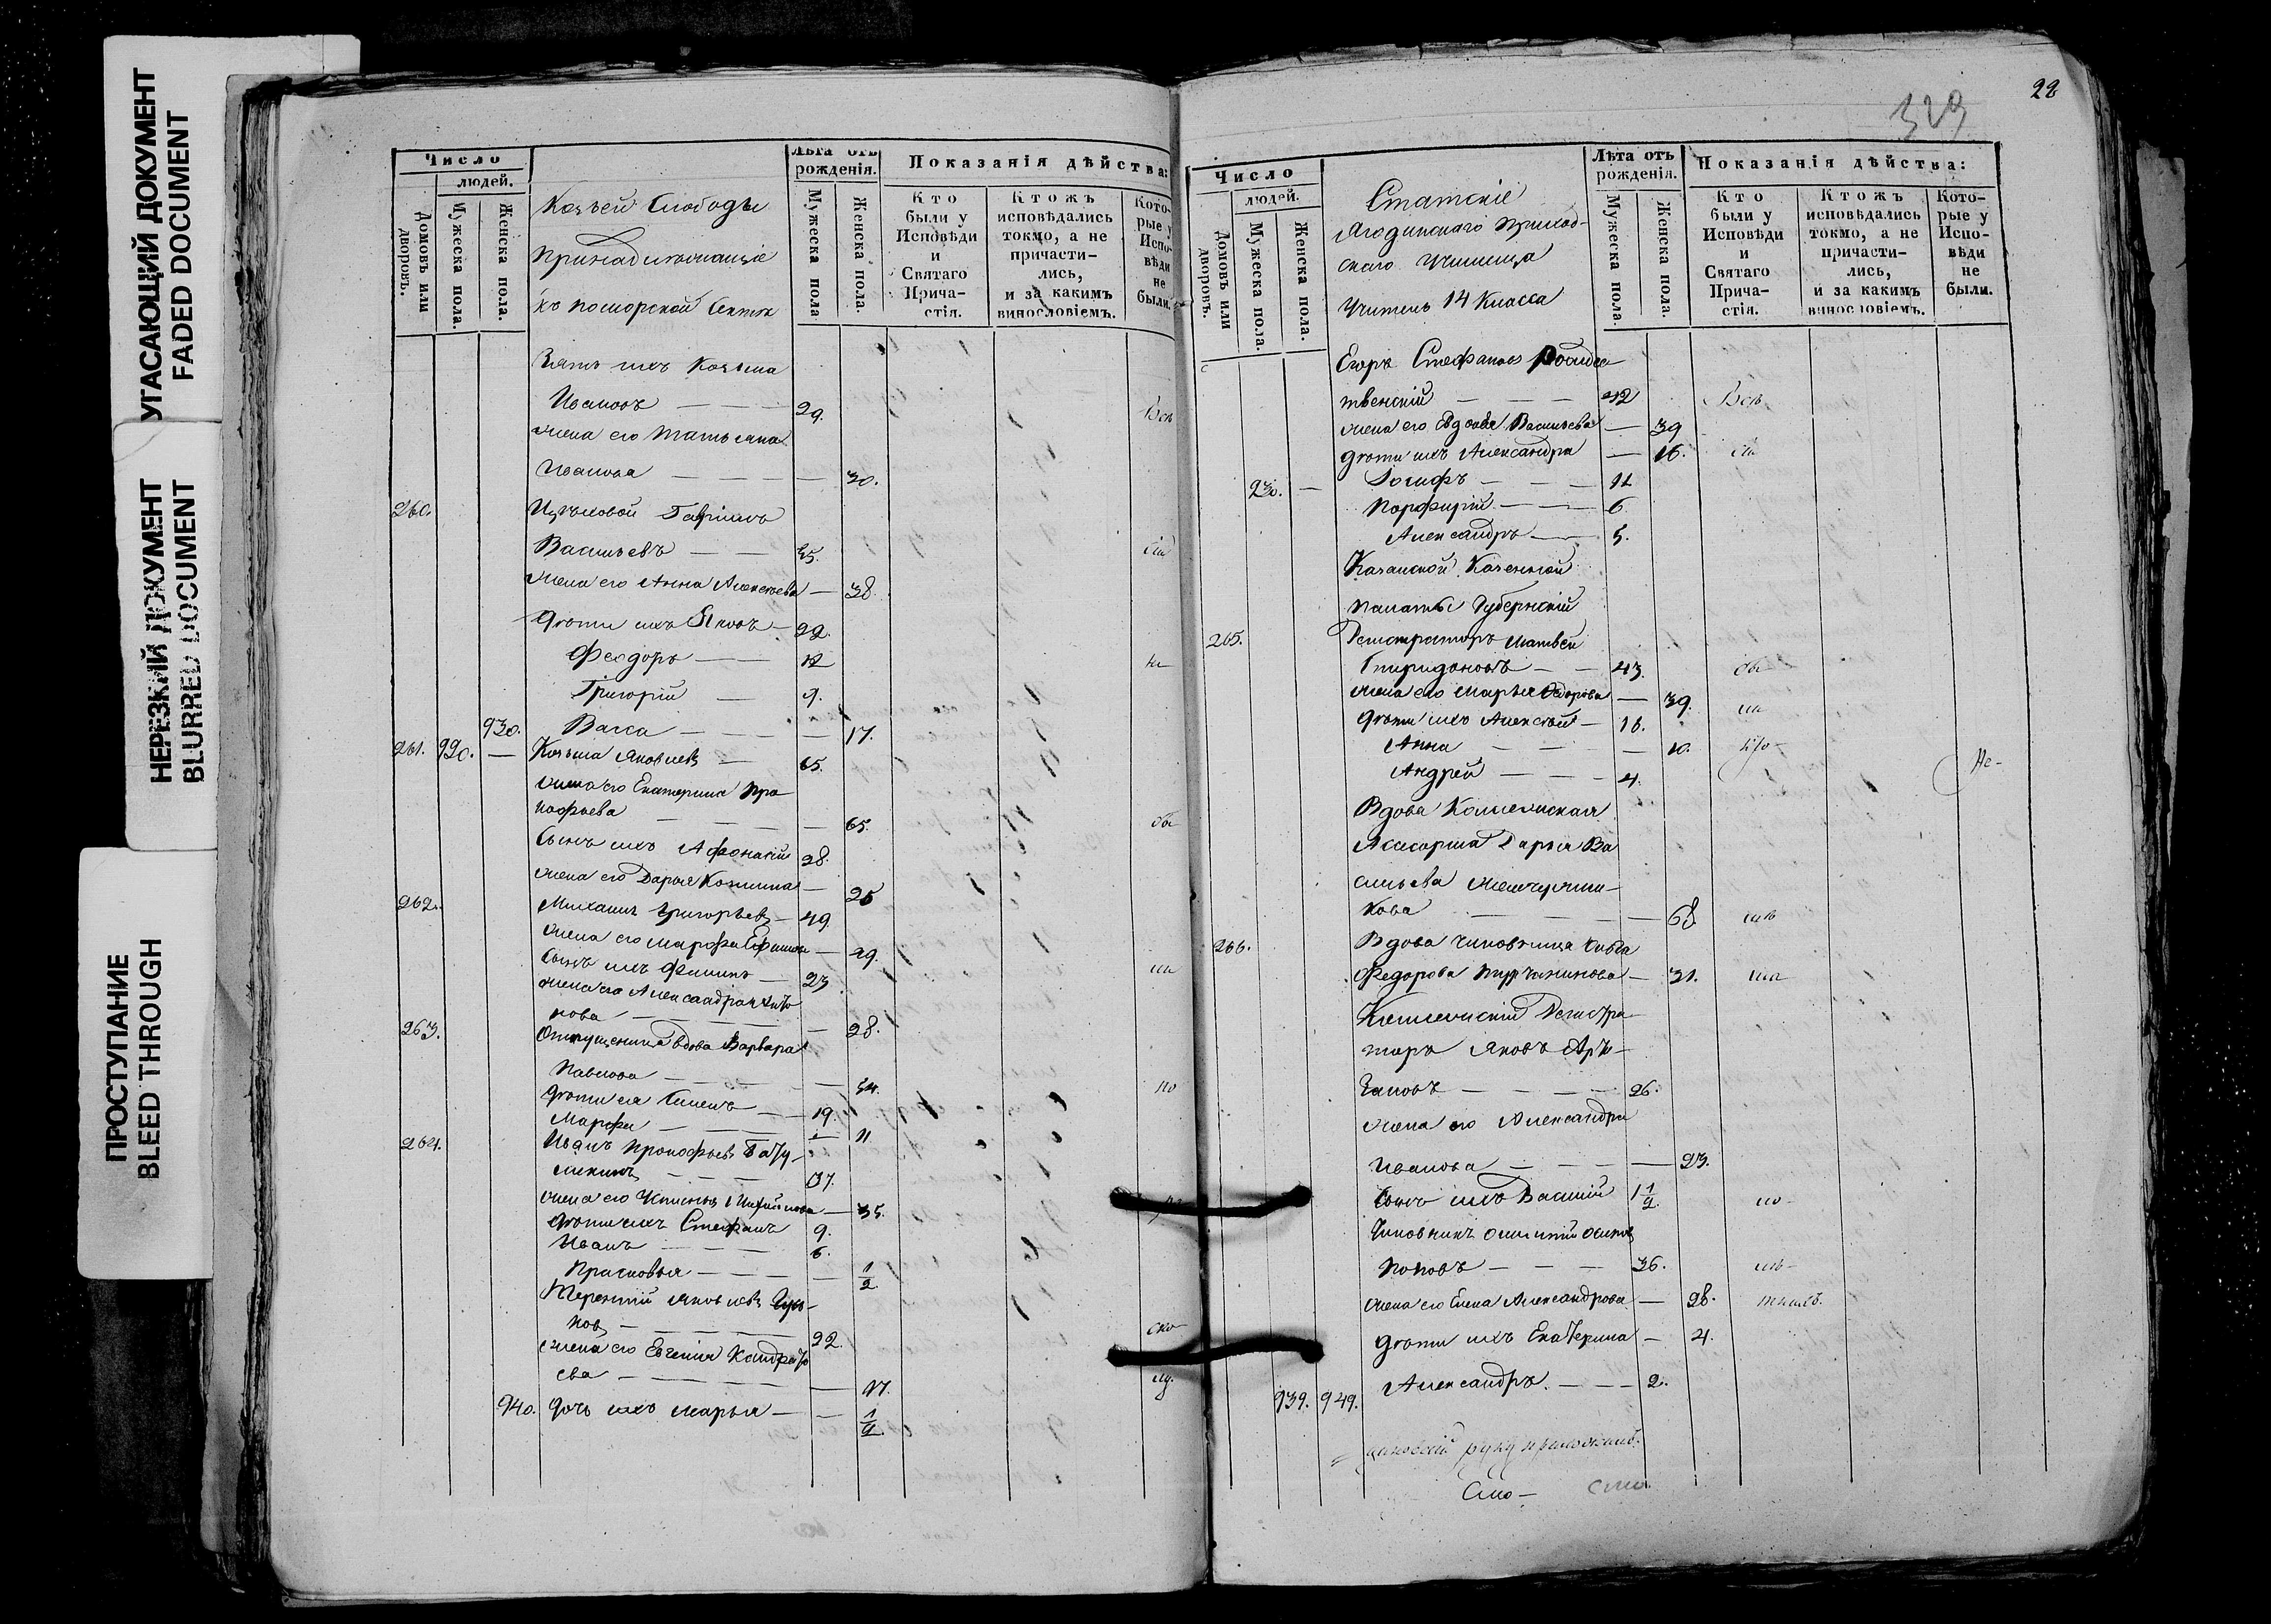 УГАСАЮЩИЙ ДОКУМЕНТ
FADED DOCUMENT
НЕРЕЗКИЙ ДОКУМЕНТ
BLURRED DOCUMENT
ПРОСТУПАНИЕ
BLEED THROUGH
Число
людей.
Домовъ или дворовъ.
Мужеска пола.
Женска пола.
Козьей Слободы
Принадлежащіе
къ поморской секты
Лѣта отъ рожденія.
Мужеска пола
Женска пола.
Показанія дѣйства:
Кто были у Исповѣди и Святаго Прича-стія.
Ктожъ исповѣдались токмо, а не причасти-лись, и за какимъ винословіемъ.
Кото-рые у Испо-вѣди не были.
Зять ихъ Козьма
Ивановъ — 29.
жена его Татьяна
Иванова — 30.
260. Гаврилъ
Васильевъ — 45.
жена его Анна Алексѣева — 38
дѣти ихъ Яковъ — 22.
Феодоръ — 12
Григорій — 9.
930. Васса — 17.
261. 920. — Козьма Яковлевъ — 65.
жена его Екатерина Про
кофьева — 65.
Сынъ ихъ Афонасій 28.
жена его Дарья Козмина — 25
262. Михаилъ Григорьевъ — 49.
жена его Марфа Ефимова — 49.
Сынъ ихъ Филипъ — 23
жена его Александра
нова — 28.
263. Отпущенница вдова Варвара
Павлова — 54.
дѣти ея Семенъ — 19.
Марфа — 11.
264. Иванъ Прокофьевъ
37.
жена его — 35.
дѣти ихъ Стефанъ 9.
Иванъ — 6.
Прасковья — 1/2
Терентій Яковлевъ
новъ — 22.
жена его Евгенія Кондрать
ева — 17.
940. дочь ихъ Марья — 1/2
22
329
Число
людей.
Домовъ или дворовъ.
Мужеска пола.
Женска пола.
Статскіе
Ягодинскаго приход-
скаго училища
Учитель 14 Класса
Лѣта отъ рожденія.
Мужеска пола.
Женска пола.
Показанія дѣйства:
Кто были у Исповѣди и Святаго Прича-стія.
Ктожъ исповѣдались токмо, а не причасти-лись, и за какимъ винословіемъ.
Кото-рые у Испо-вѣди не были.
Егоръ Стефановъ Рождес
твенскій — 42
жена его Евдокія Васильева — 39
дѣти ихъ Александра — 16.
930. — Іосифъ — 12
Порфирій — 6.
Александръ — 5.
Казанской Казенной
палаты Губернскій
265. Регистраторъ Матвей
Спиридоновъ — 43.
жена его Марья Федорова — 39.
дѣти ихъ Алексѣй — 16.
Анна — 10.
Андрей — 4.
Не-
Вдова Коллежская
Асесорша Дарья Ва
сильева Жемчужни-
кова — 68
266. Вдова чиновница
Федорова Турчанинова — 31.
Коллежскій Регистра
торъ Яковъ
26.
жена его Александра
Иванова — 23.
Сынъ ихъ Василій 1 1/2
Чиновникъ
Поповъ — 36.
жена его Елена Александрова — 28.
дѣти ихъ Екатерина — 4.
939. 949. Александръ. — 2.
руку приложилъ.